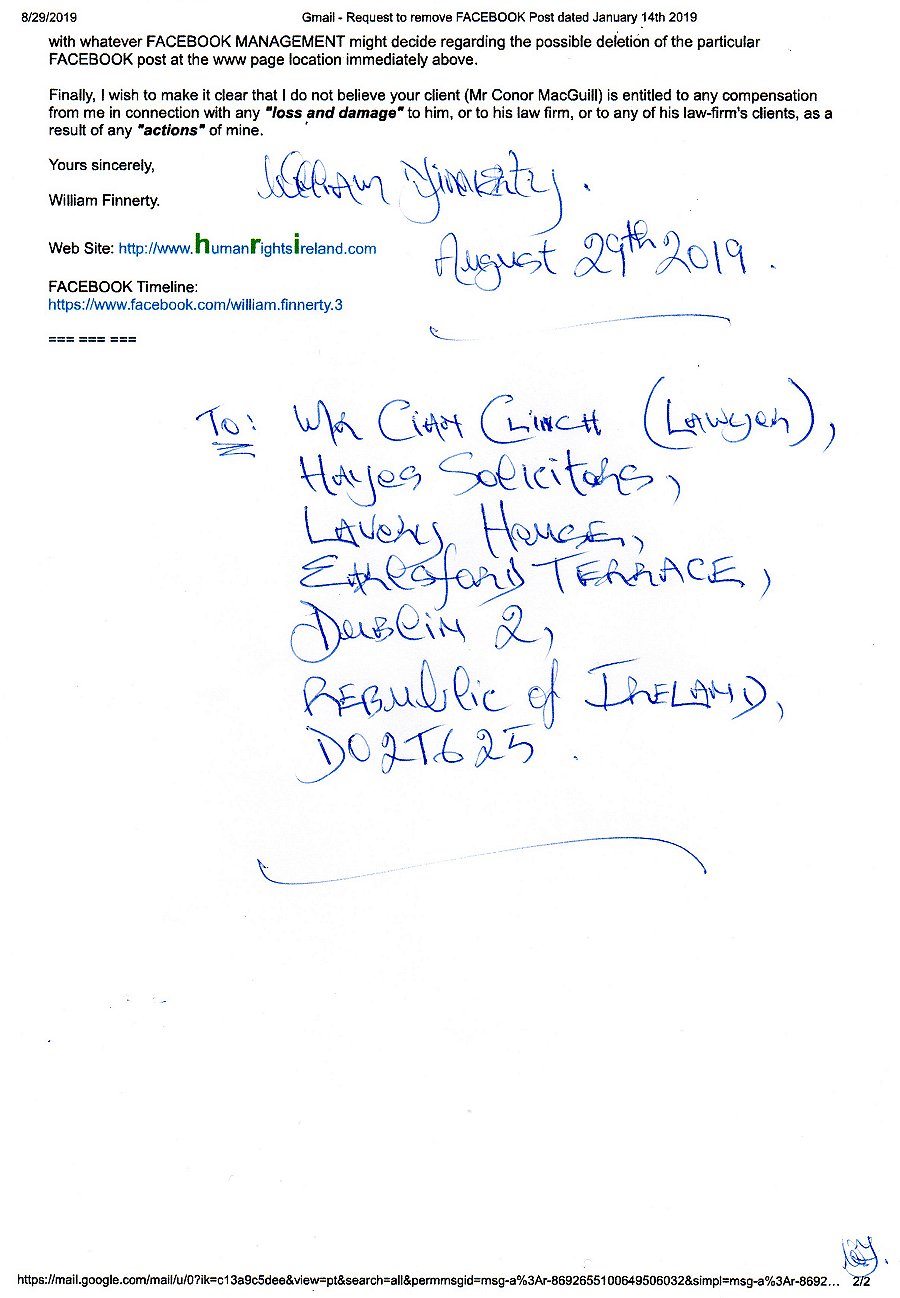 8/29/2019 Gmail - Request to remove FACEBOOK Post dated January 14th 2019
with whatever FACEBOOK MANAGEMENT might decide regarding the possible deletion of the particular
FACEBOOK post at the www page location immediately above.
Finally, I wish to make it clear that I do not believe your client (Mr Conor MacGuill) is entitled to any compensation
from me in connection with any "loss and damage" to him, or to his law firm, or to any of his law-firm's clients, as a
result of any "actions" of mine.
Yours sincerely,
William Finnerty.
William Finnerty.
Web Site: http://www.humanrightsireland.com
August 29th 2019.
FACEBOOK Timeline:
https://www.facebook.com/william.finnerty.3
=== === ===
To: Mr Cian Clinch (Lawyer),
Hayes Solicitors,
Lavery House,
Earlsford TERRACE,
Dublin 2,
Republic of IRELAND,
D02T625.
https://mail.google.com/mail/u/0?ik=c13a9c5dee&view=pt&search=all&permmsgid=msg-a%3Ar-8692655100649506032&simpl=msg-a%3Ar-8692... 2/2